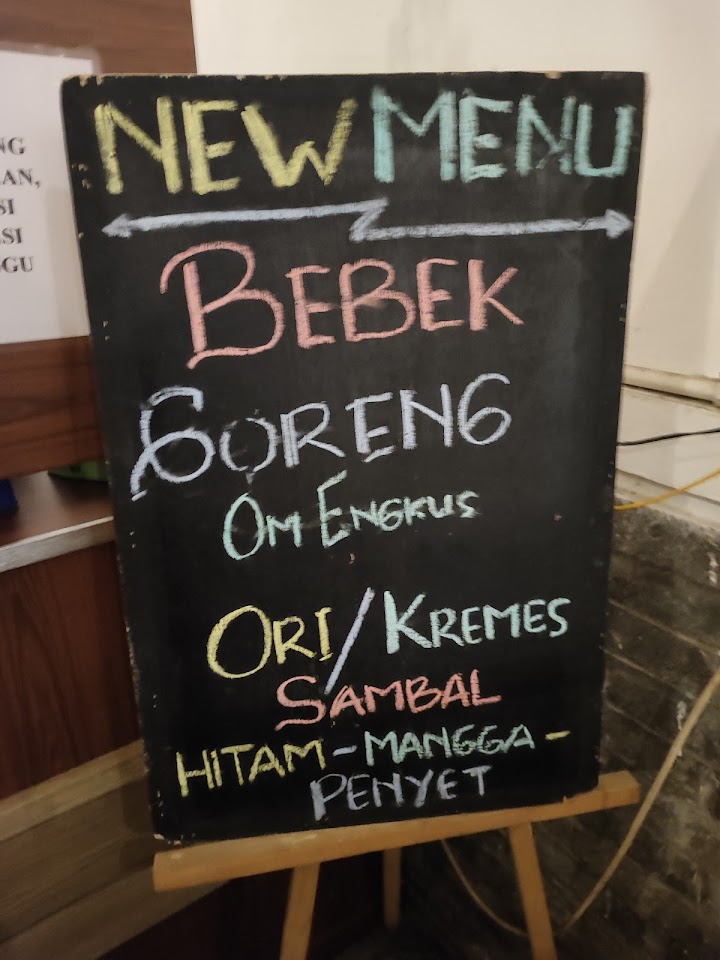 NEW MENU
BEBEK
GORENG
OM ENGKUS
ORI/KREMES
SAMBAL
HITAM-MANGGA-
PENYET